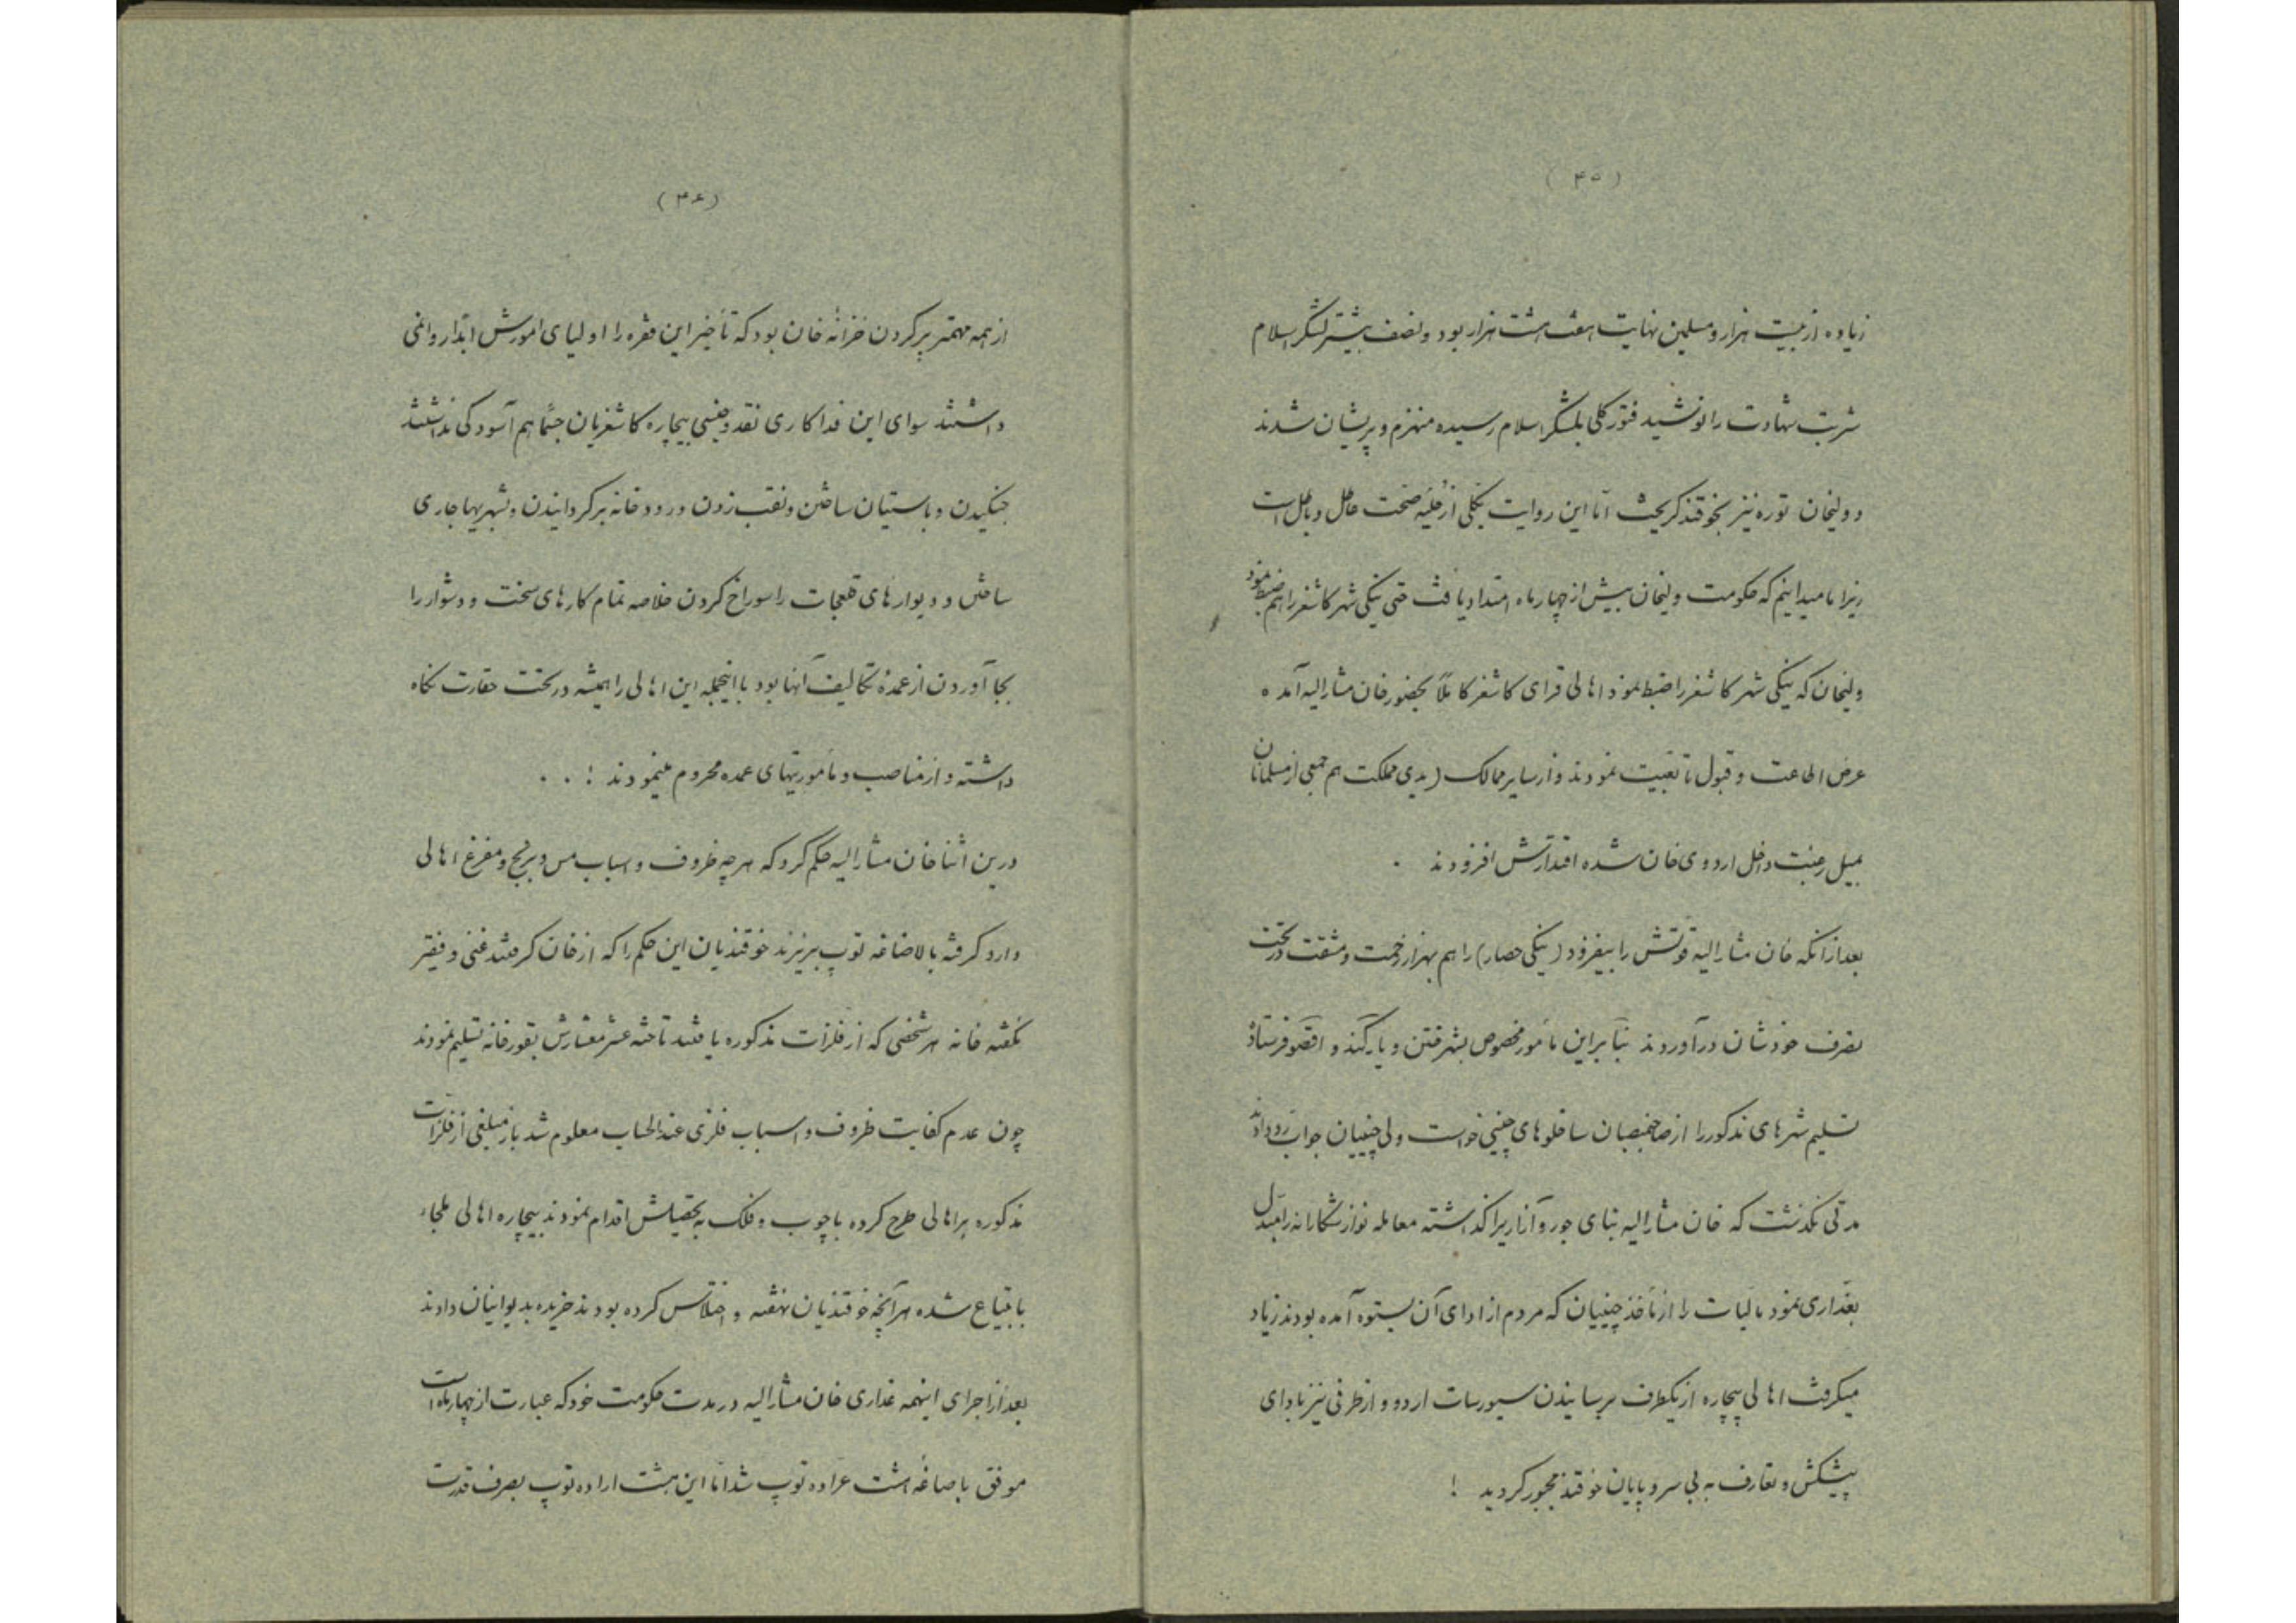 (۴۵)
زیاده از بیست هزار و مسلمین نهایت هفت هشت هزار بود و نصف بیشتر لشکر اسلام
شربت شهادت را نوشید فتور کلی بلشکر اسلام رسیده منهزم و پریشان شدند
و ولیخان توره نیز بخوقند کریخت اما این روایت بکلی از حلیه صحت عاطل و باطل است
زیرا ما میدانیم که حکومت ولیخان بیش از چهار ماه امتداد یافت حتی ینکی شهر کاشغر را هم ضبط نمود
ولیخان که ینکی شهر کاشغر را ضبط نمود اهالی قرای کاشغر کاملاً بحضور خان مشارالیه آمده
عرض اطاعت و قبول تابعیت نمودند و از سایر ممالک (یدی مملکت هم جمعی از مسلمانان
بمیل رغبت داخل اردوی خان شده اقتدارش افزودند .
بعد از آنکه خان مشارالیه قوتش را بیفزود (ینکی حصار) را هم بهزار زحمت و مشقت در تحت
تصرف خودشان درآوردند بنابراین مأمور مخصوص بشهر ختن و یارکند و اقصو فرستاد
تسلیم شهرهای مذکور را از صاحبمنصبان ساخلوهای چینی خواست ولی چینیان جواب رد دادند
مدتی نکذشت که خان مشارالیه بنای جور و آزار برا کذاشته معامله نوازشکارانه را مبدل
بغداری نمود مالیات را از مأخذ چینیان که مردم از ادای آن بستوه آمده بودند زیاد
میکرفت اهالی بیچاره از یکطرف برسانیدن سیورسات اردو و از طرفی نیز بادای
پیشکش و تعارف به بی سر و پایان خوقند مجبور کردید !
(۴۶)
از همه مهمتر پر کردن خزانه خان بود که تأخیر این فقره را اولیای امورش ابدا روا نمی
داشتند سوای این فداکاری نقد و جنسی بیچاره کاشغریان جسماً هم آسودکی نداشتند
جنکیدن و باستیان ساختن و نقب زدن و رودخانه برکردانیدن و شهریها جاری
ساختن و دیوارهای قلعجات را سوراخ کردن خلاصه تمام کارهای سخت و دشوار را
بجا آوردن از عمدهٔ تکالیف آنها بود با اینجمله این اهالی را همیشه در تحت حقارت نکاه
داشته و از مناصب و مأموریتهای عمده محروم مینمودند ! . .
درین اثنا خان مشارالیه حکم کرد که هر چه ظروف و اسباب مس و برنج و مفرغ اهالی
دارد کرفته بالاضاغه توپ بریزند خوقندیان این حکم را که از خان کرفتند غنی و فقیر
نکفته خانه هر شخصی که از فلزات مذکوره یافتند تا حتی عشر معشارش بقورخانه تسلیم نمودند
چون عدم کفایت ظروف و اسباب فلزی عندالحساب معلوم شد باز مبلغی از فلزات
مذکوره براهالی طرح کرده با چوب و فلک به تحصیلش اقدام نمودند بیچاره اهالی ملجاء
بابتیاع شده هر آنچه خوقندیان نهفته و اختلاس کرده بودند خریده بدیوانیان دادند
بعد از اجرای اینهمه غداری خان مشارالیه در مدت حکومت خود که عبارت از چهار ماه است
موفق باصاغه هشت عراده توپ شد اما این هشت اراده توپ بصرف قدرت